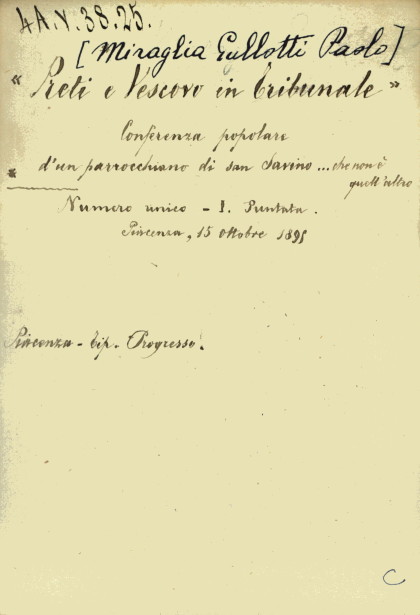 4A.V.38.25.
[Miraglia Gullotti Paolo]
"Preti e Vescovo in Tribunale"
Conferenza popolare
* d'un parrocchiano di san Savino ... che non è
quell'altro
Numero unico - I. Puntata.
Piacenza, 15 ottobre 1895
Piacenza - Tip. Progresso.
C